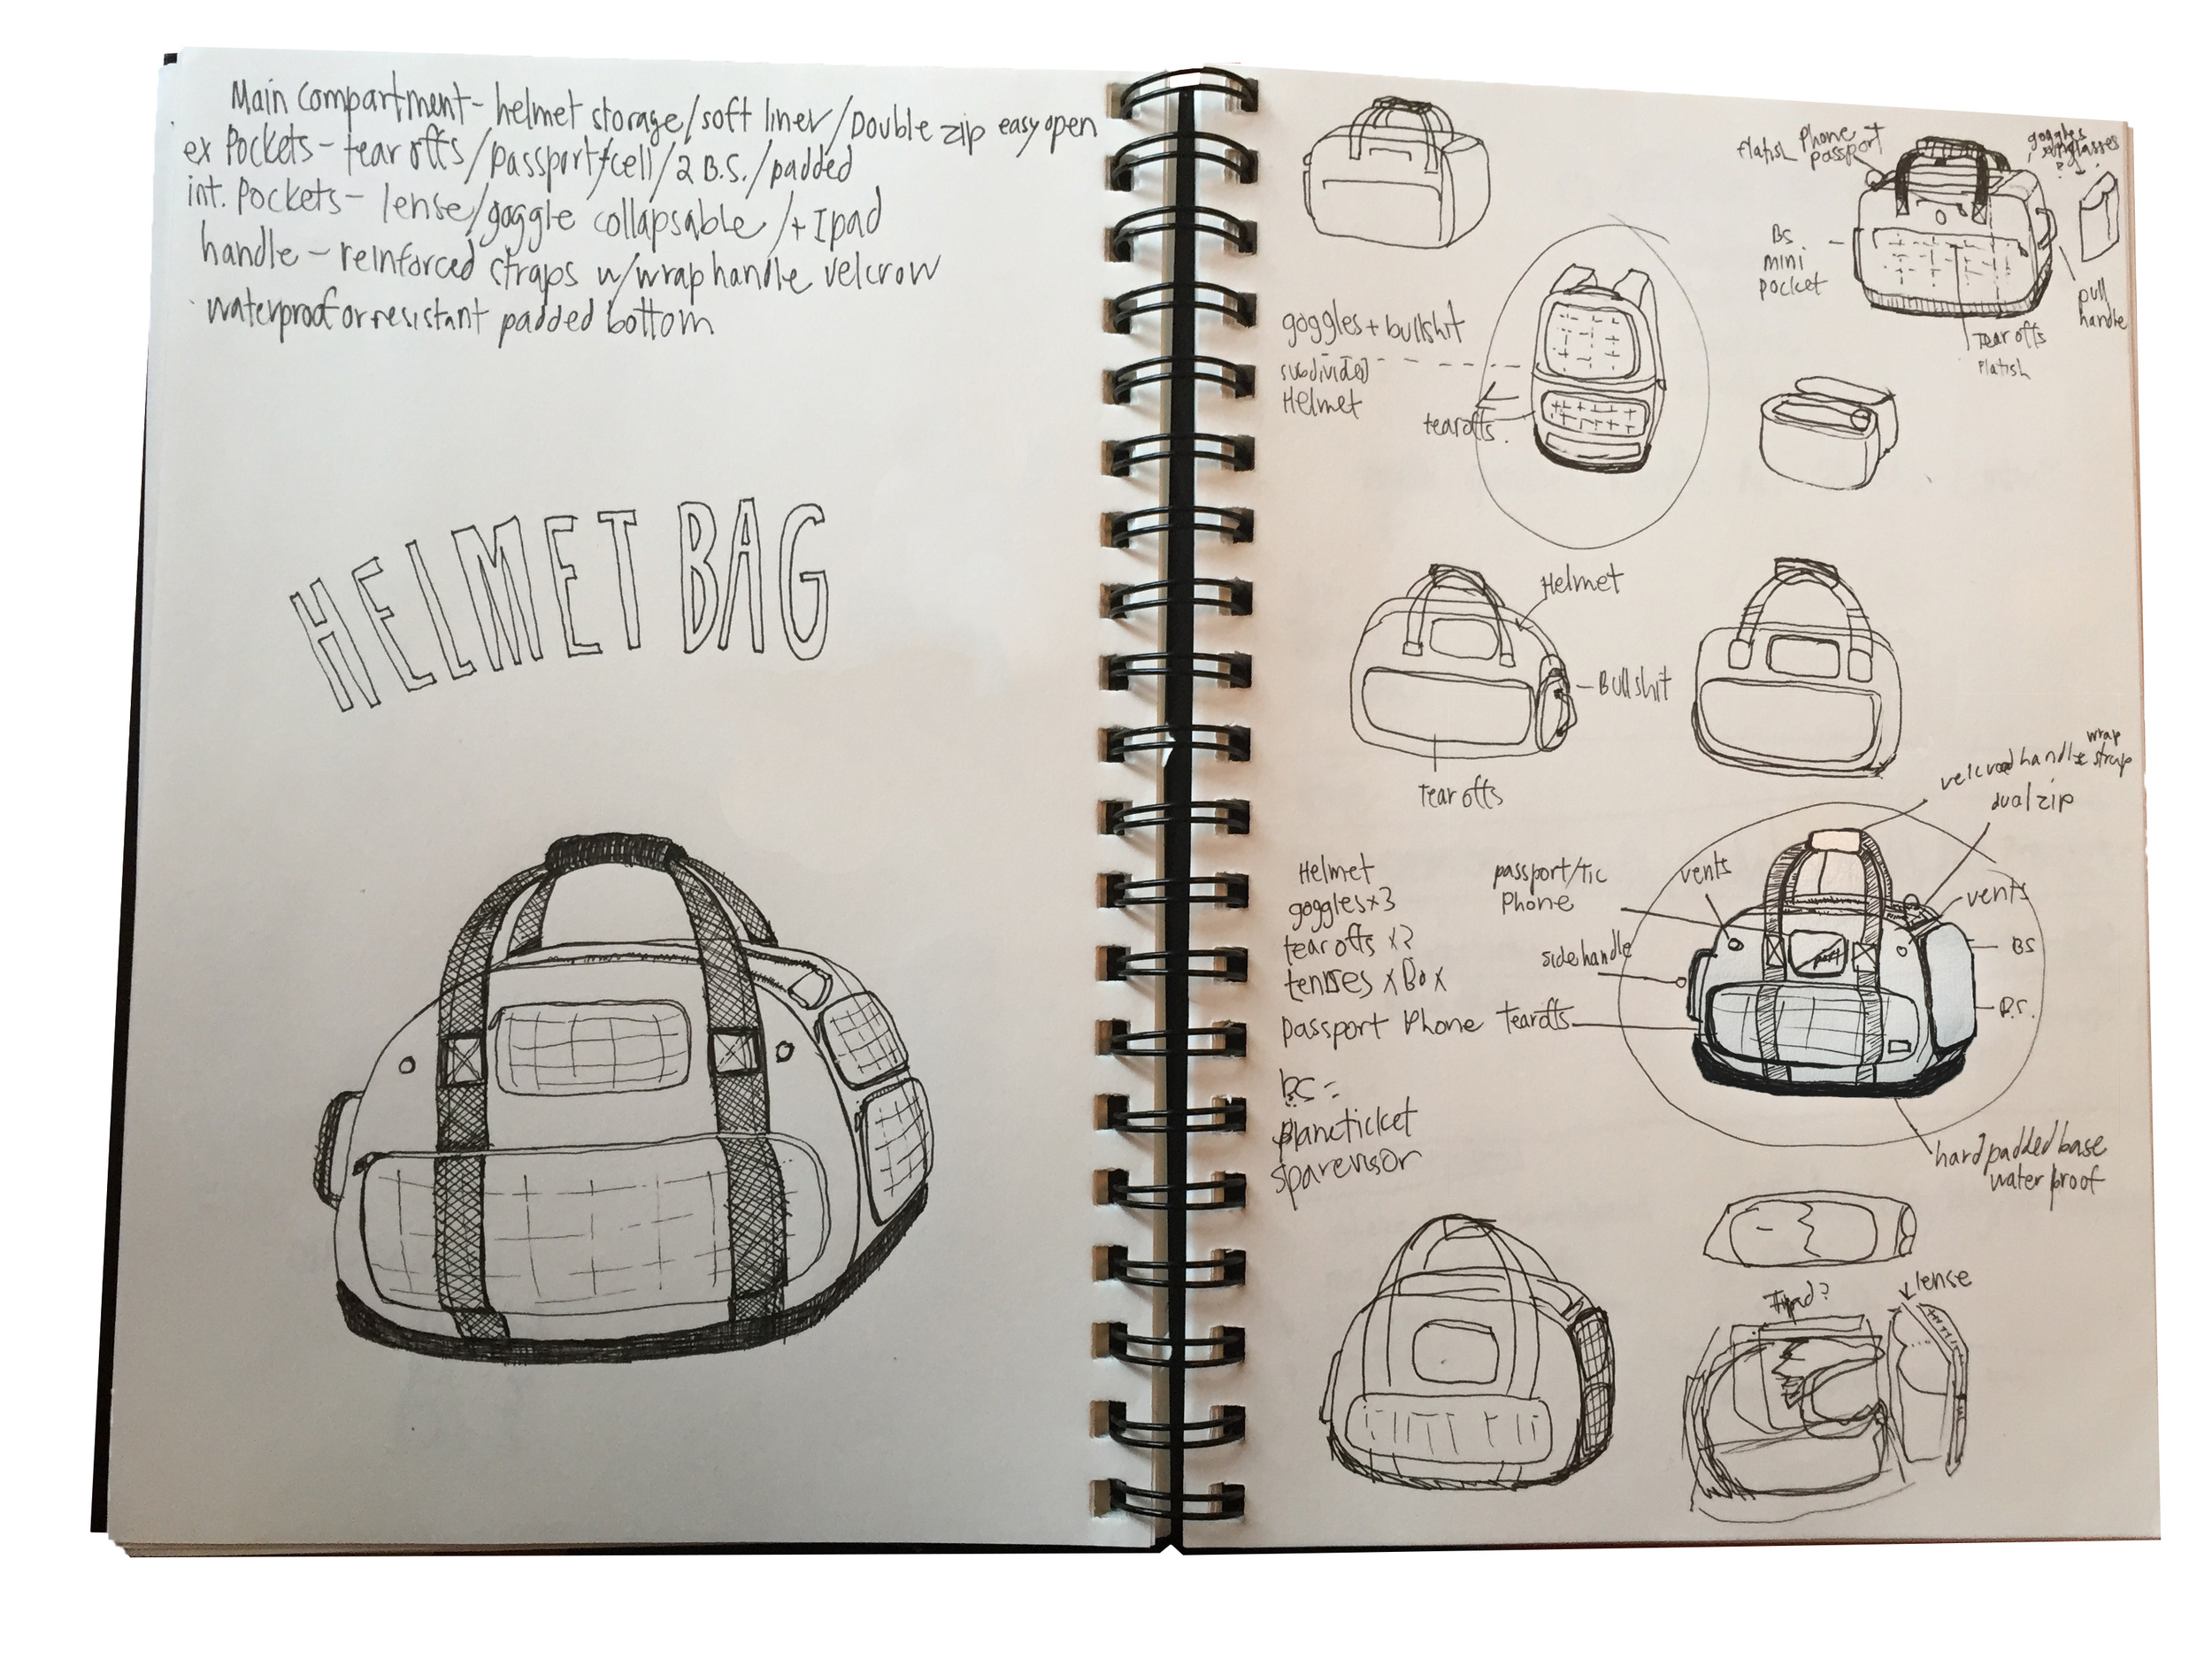 Main compartment- helmet storage/soft liner/Double zip easy open
ex Pockets- tear offs/passport/cell/2 B.S./padded
int. Pockets- lense/goggle collapsable /+ Ipad
handle - reinforced straps w/wrap handle velcrow
waterproof or resistant padded bottom
HELMET BAG
flatish Phone +
passport
goggles
sunglasses
BS
mini
pocket
pull
handle
Tear offs
Flatish
goggles + bullshit
subdivided
Helmet
tear offs.
Helmet
Bullshit
Tear offs
wrap
handle strap
dual zip
Helmet
goggles x3
tear offs x2
lenses x Box
passport Phone
BS =
plane ticket
spare visor
passport/tic
Phone
vents
vents
side handle
BS
B.S.
Tearoffs
hard padded base
water proof
Ipad?
lense